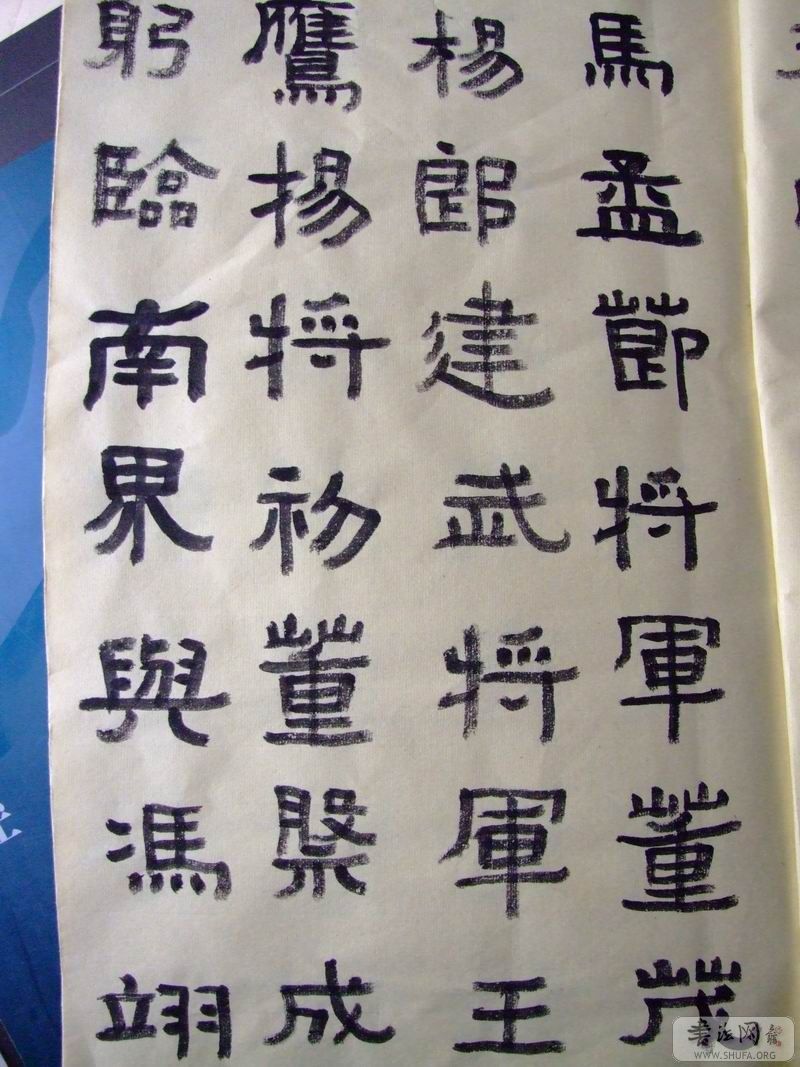 馬孟節将軍董茂
楊郎建武将軍王
鷹揚将初董槃成
躬臨南界與馮翊
书法网
WWW.SHUFA.ORG